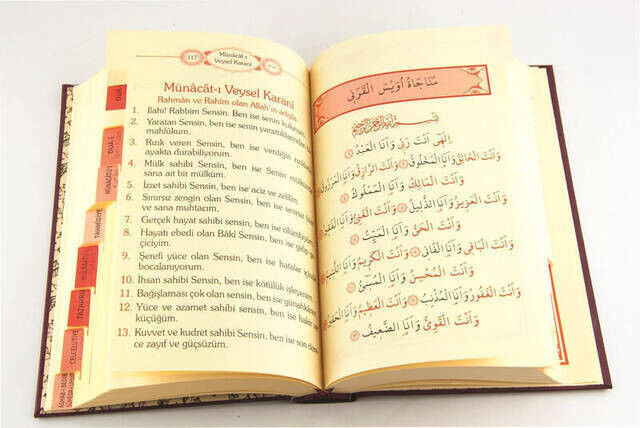 317
Münâcât-ı
Veysel Karanî
Münâcât-ı Veysel Karanî
Rahmân ve Rahîm olan Allah'ın adıyla.
1. İlahi! Rabbim Sensin. Ben ise senin kulunum.
2. Yaratan Sensin, ben ise senin yarattıklarından
mahlûkum.
3. Rızık veren Sensin, ben ise verdiğin rızıkla
ayakta durabiliyorum.
4. Mülk sahibi Sensin, ben ise
sana ait bir mülküm.
5. İzzet sahibi Sensin, ben ise aciz ve zelilim.
6. Sınırsız zengin olan Sensin, ben ise sınırsız
ve sana muhtacım.
7. Gerçek hayat sahibi Sensin, ben ise ölümlüyüm.
8. Hayatı ebedi olan Bâkî Sensin, ben ise gelip
çiciyim.
9. Şerefi yüce olan Sensin, ben ise hatalar içinde
bocalanıyorum.
10. İhsan sahibi Sensin, ben ise kötülük işleyenim.
11. Bağışlaması çok olan sensin, ben ise günahkârım.
12. Yüce ve azamet sahibi Sensin, ben ise hakir
küçüğüm.
13. Kuvvet ve kudret sahibi Sensin, ben ise son
ce zayıf ve güçsüzüm.
DUÂ
DUÂ-İ
MÜNÂCÂTÜ'L
TAHMÎDİYE
TAZARRU
CELCELUTİYE
مُنَاجَاةُ اُوَيْسَ الْقَرَنِى
بِسْمِ اللهِ الرَّحْمٰنِ الرَّحِيمِ
اِلٰهِى اَنْتَ رَبِّى وَاَنَا الْعَبْدُ
وَاَنْتَ الْخَالِقُ وَاَنَا الْمَخْلُوقُ وَاَنْتَ الرَّزَّاقُ وَاَنَا الْمَرْزُوقُ
وَاَنْتَ الْمَالِكُ وَاَنَا الْمَمْلُوكُ
وَاَنْتَ الْعَزِيزُ وَاَنَا الذَّلِيلُ وَاَنْتَ الْغَنِىُّ وَاَنَا
وَاَنْتَ الْحَىُّ وَاَنَا الْمَيِّتُ
وَاَنْتَ الْبَاقِى وَاَنَا الْفَانِى وَاَنْتَ الْكَرِيمُ وَاَنَا
وَاَنْتَ الْمُحْسِنُ وَاَنَا الْمُسِئُ
وَاَنْتَ الْغَفُورُ وَاَنَا الْمُذْنِبُ وَاَنْتَ الْعَظِيمُ وَاَنَا الْحَقِيرُ
وَاَنْتَ الْقَوِىُّ وَاَنَا الضَّعِيفُ